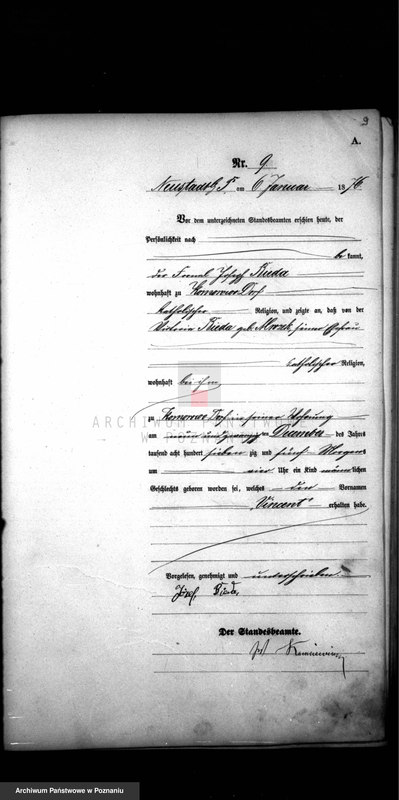 9
A.
Nr. 9
Neustadt b P. am 6 Januar 1876
Vor dem unterzeichneten Standesbeamten erschien heute, der
Persönlichkeit nach
be kannt,
der Fornal Joseph
wohnhaft zu Komorowo Dorf
katholischer Religion, und zeigte an, daß von der
Victoria geb. seiner Ehefrau
katholischer Religion,
wohnhaft bei ihm
ARCHIWUM PAŃSTWOWE
W POZNANIU
zu Komorowo Dorf in seiner Wohnung
am neun und zwanzigsten December des Jahrs
tausend acht hundert sieben zig und fünf Morgens
um vier Uhr ein Kind männlichen
Geschlechts geboren worden sei, welches den Vornamen
"Vincent" erhalten habe.
Vorgelesen, genehmigt und unterschrieben
Józef
Der Standesbeamte.
Archiwum Państwowe w Poznaniu